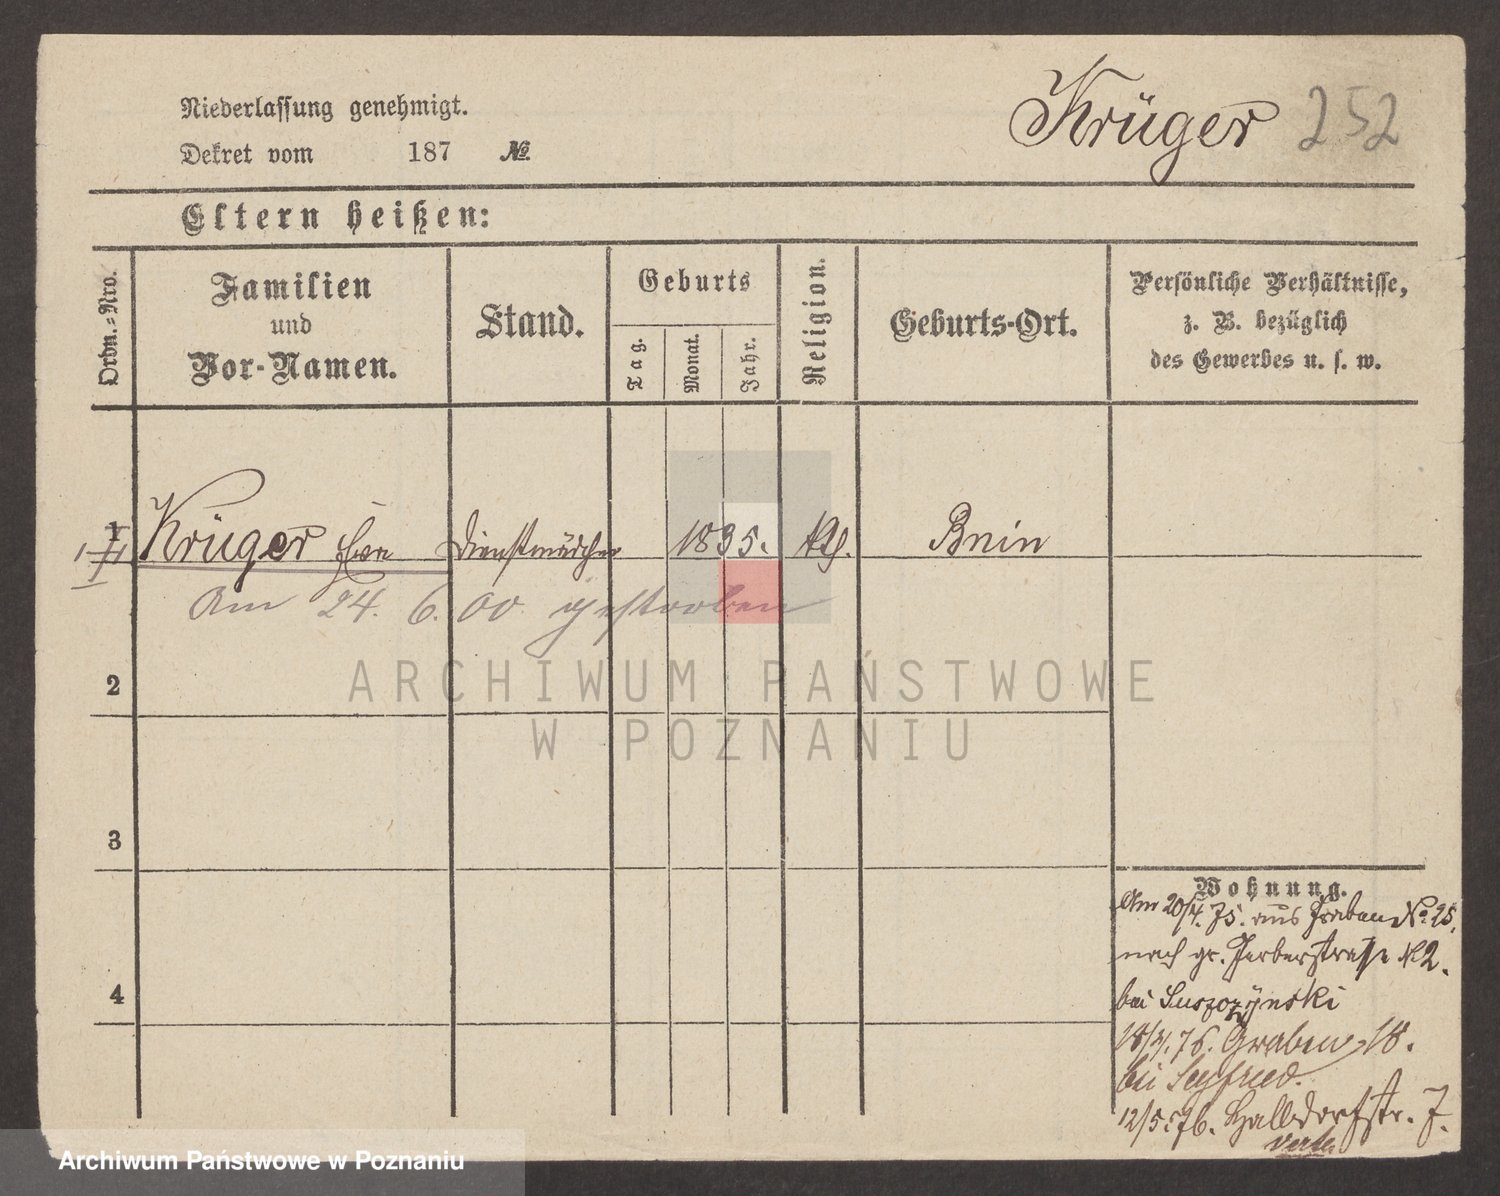 Niederlassung genehmigt.
Krüger 252
Dekret vom 187 №
Eltern heißen:
Ordn.-Nro.
Familien
und
Vor-Namen.
Stand.
Geburts
Tag.
Monat.
Jahr.
Religion.
Geburts-Ort.
Persönliche Verhältnisse,
z. B. bezüglich
des Gewerbes u. s. w.
1 Krüger Dienstmädchen 1835. Bnin
Am 24. 6. 00 gestorben
2
ARCHIWUM PAŃSTWOWE
W POZNANIU
3
4
Wohnung.
Am 20/4. 75. aus Graben No. 25.
nach gr. Gerberstraße 42.
bei Suszczynski
Graben 18.
bei Seyfried.
12/5. 76. Halldorfstr. 7.
verte
Archiwum Państwowe w Poznaniu